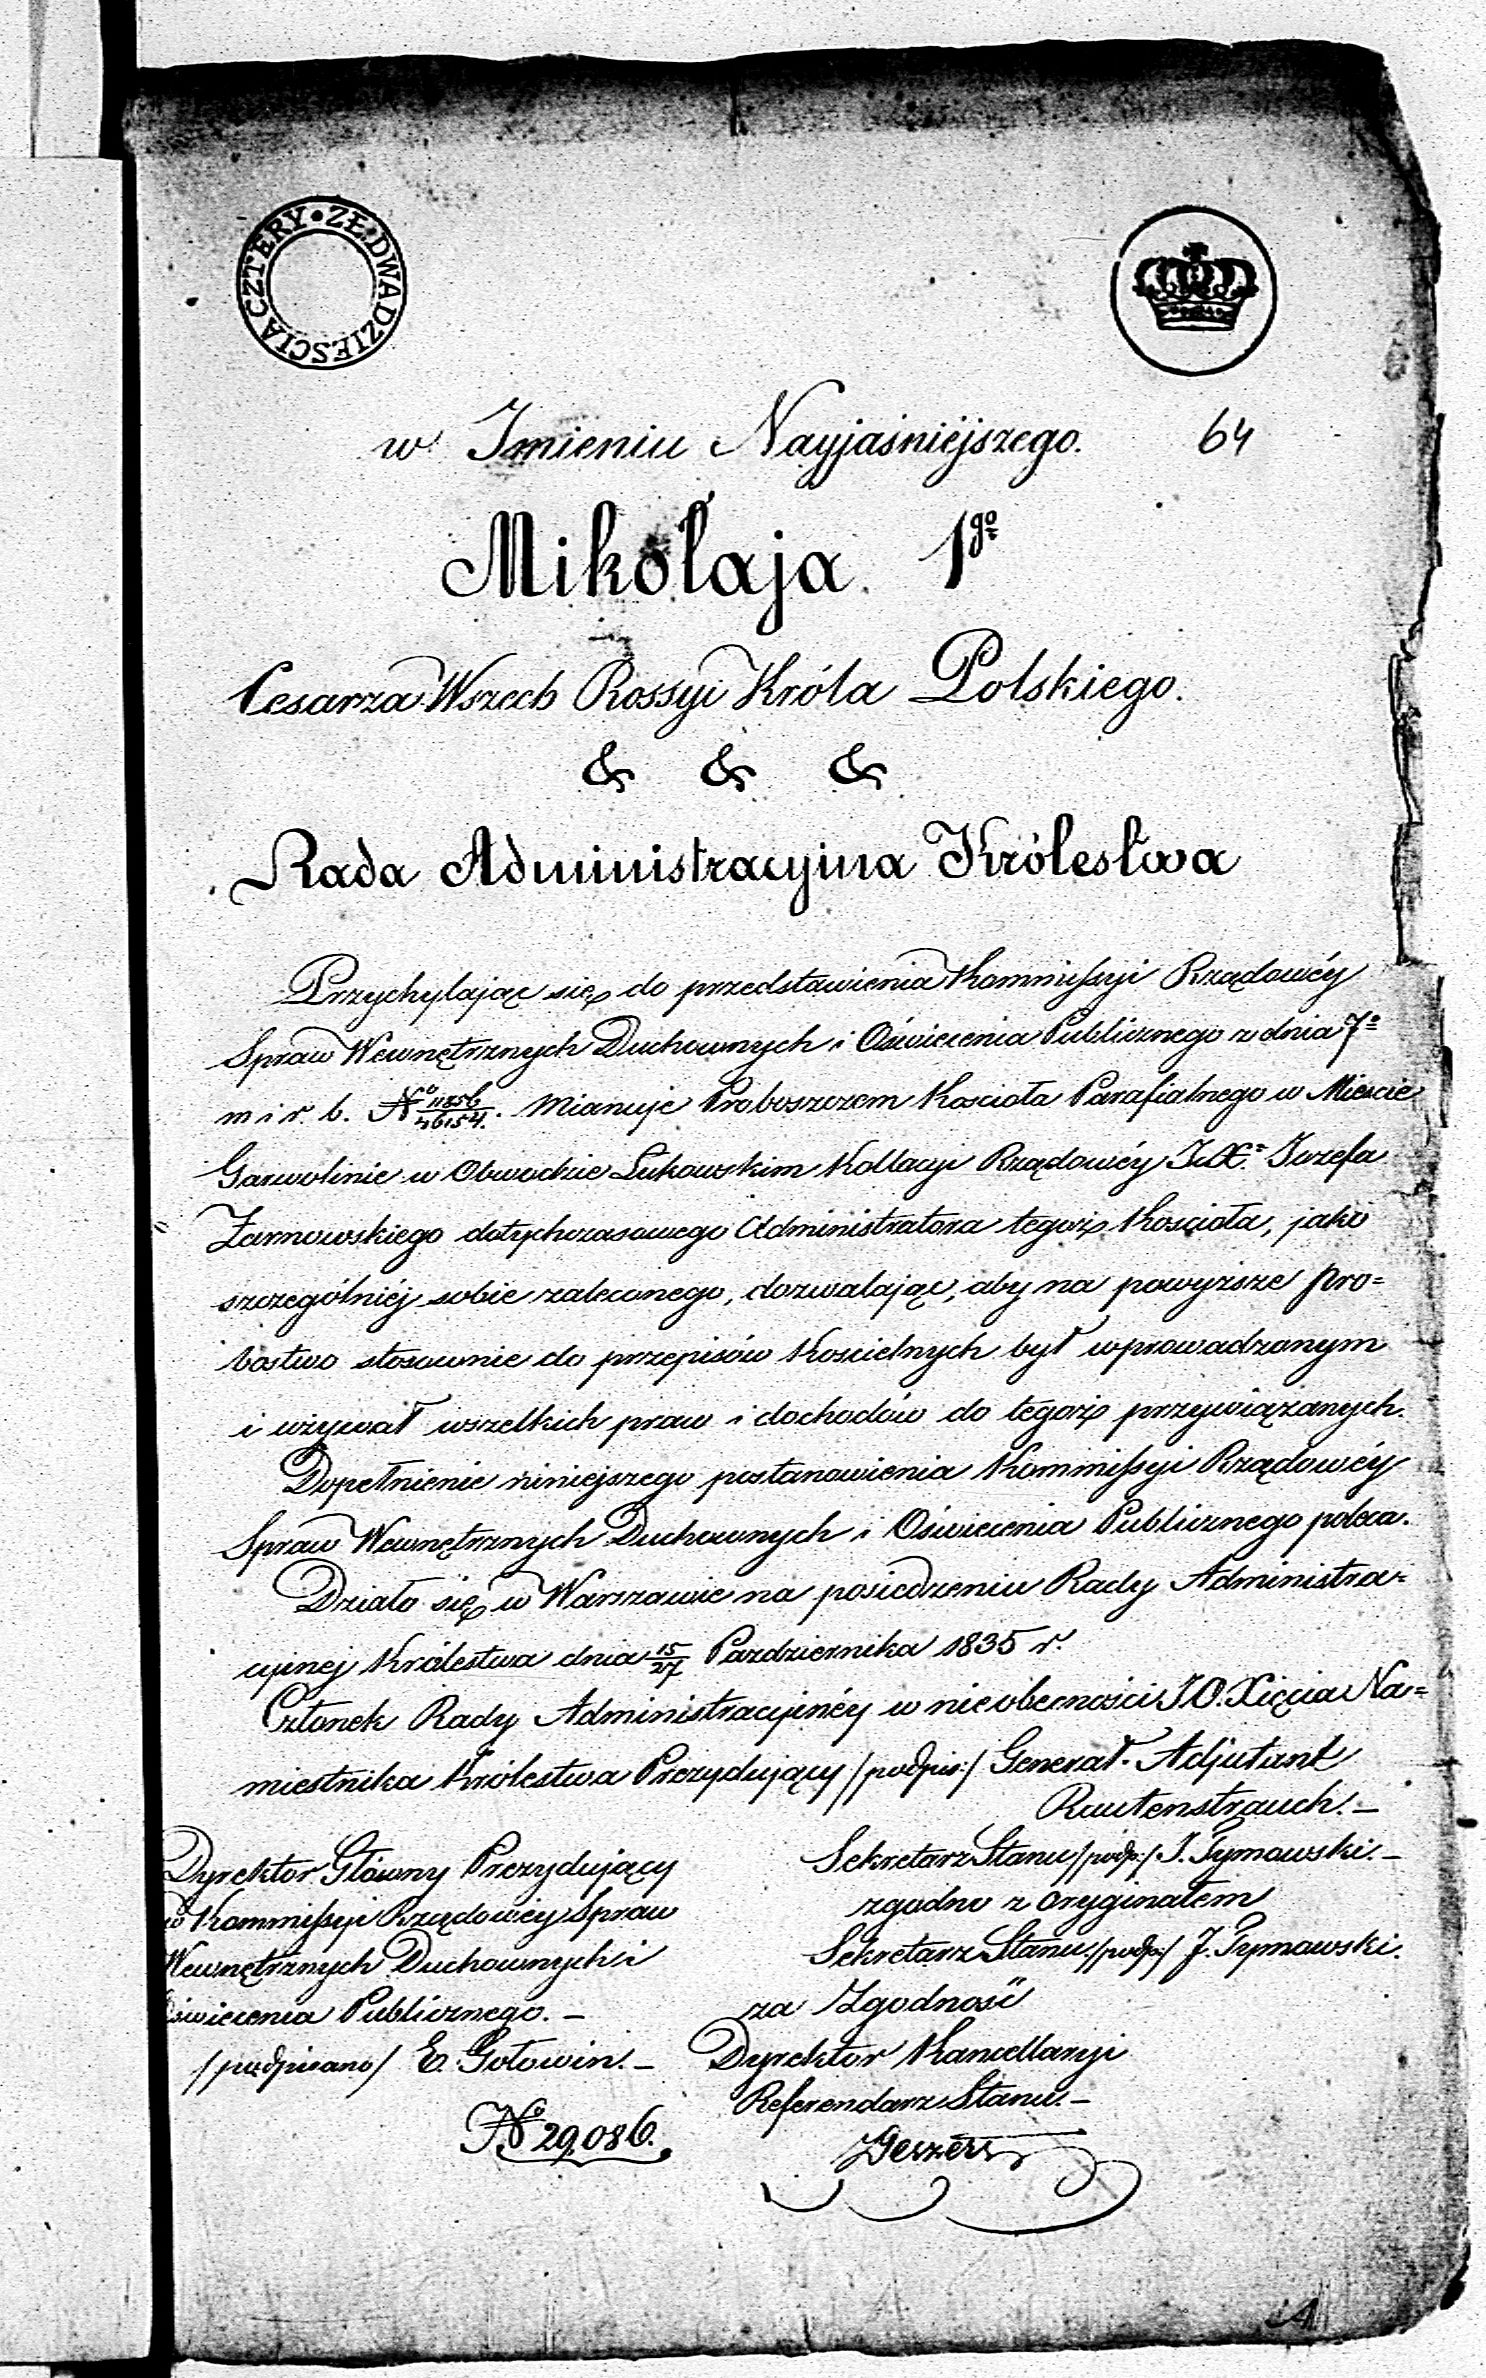 ZŁ: DWADZIEŚCIA CZTERY
w Imieniu Nayjaśniéjszego.
64
Mikołaja 1go
Cesarza Wszech Rossyi Króla Polskiego.
& & &
Rada Administracyjna Królestwa
Przychylając się do przedstawienia Kommissyi Rządowéy
Spraw Wewnętrznych Duchownych i Oświecenia Publicznego z dnia 7o
m i r. b. No 11856/46154. mianuje Proboszczem Kościoła Parafialnego w Mieście
Garwolinie w Obwodzie Łukowskim Kollacyi Rządowéy JX. Józefa
Żarnowskiego dotychczasowego Administratora tegoż Kościoła, jako
szczególniéj sobie zaleconego, dozwalając, aby na powyższe pro=
bostwo stosownie do przepisów Kościelnych był wprowadzonym
i używał wszelkich praw i dochodów do tegoż przywiązanych.
Dopełnienie niniejszego postanowienia Kommissyi Rządowéy
Spraw Wewnętrznych Duchownych i Oświecenia Publicznego poleca.
Działo się w Warszawie na posiedzeniu Rady Administra=
cyinej Królestwa dnia 15/27 Pazdziernika 1835 r.
Członek Rady Administracyinéy w nieobecności J.O. Xięcia Na=
miestnika Królestwa Prezydujący /podpis:/ Generał-Adjutant
Rautenstrauch.—
Dyrektor Główny Prezydujący
w Kommissyi Rządowéy Spraw
Wewnętrznych Duchownych i
Oświecenia Publicznego.—
/podpisano/ E. Gołowin.—
No 29,086.
Sekretarz Stanu /podp:/ J. Tymowski.—
zgodno z oryginałem
Sekretarz Stanu /podp:/ J. Tymowski.
za Zgodność
Dyrektor Kancellaryi
Referendarz Stanu.—